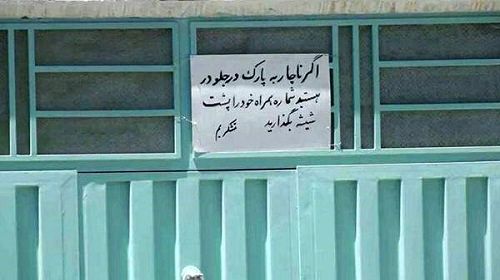 اگر ناچار به پارک در جلو در
هستید شماره همراه خود را پشت
شیشه بگذارید متشکریم